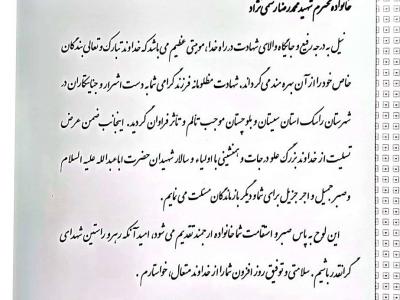 خانواده محترم شهید محمدرضا رستمی نژاد
نیل به درجه رفیع و جایگاه والای شهادت در راه خدا، موهبتی عظیم می‌باشد که خداوند تبارک و تعالی بندگان
خاص خود را از آن بهره‌مند می‌گرداند. شهادت مظلومانه فرزند گرامی شما به دست اشرار و جنایتکاران در
شهرستان راسک استان سیستان و بلوچستان موجب تألم و تأثر فراوان گردید. اینجانب ضمن عرض
تسلیت از خداوند بزرگ علو درجات و همنشینی با اولیاء و سالار شهیدان حضرت اباعبدالله علیه السلام
و صبر جمیل و اجر جزیل برای شما و دیگر بازماندگان مسئلت می‌نمایم.
این لوح به پاس صبر و استقامت شما خانواده ارجمند تقدیم می‌شود، امید آنکه رهرو راستین شهدای
گرانقدر باشیم. سلامتی و توفیق روز افزون شما را از خداوند متعال، خواستارم.